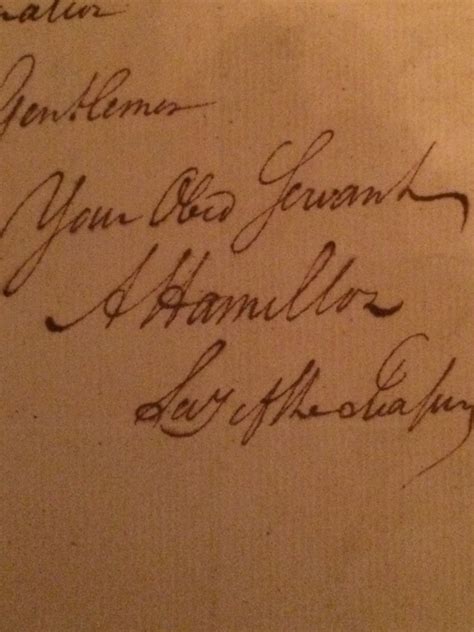 Gentlemen
Your Obed Servant
A Hamilton
Secy of the Treasury